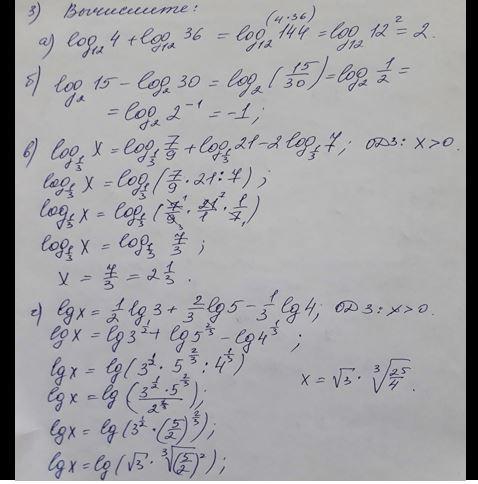 3) Вычислите:
(4·36)
а) log₁₂ 4 + log₁₂ 36 = log₁₂ 144 = log₁₂ 12² = 2.
б) log₂ 15 − log₂ 30 = log₂ (15/30) = log₂ 1/2 =
= log₂ 2⁻¹ = −1;
в) log_{1/3} x = log_{1/3} 7/9 + log_{1/3} 21 − 2 log_{1/3} 7; ОДЗ: x>0.
log_{1/3} x = log_{1/3} (7/9 · 21 : 7);
log_{1/3} x = log_{1/3} (7/9 · 21/1 · 1/7)
log_{1/3} x = log_{1/3} 7/3;
x = 7/3 = 2 1/3.
г) lg x = 1/2 lg 3 + 2/3 lg 5 − 1/3 lg 4; ОДЗ: x>0.
lg x = lg 3^{1/2} + lg 5^{2/3} − lg 4^{1/3};
lg x = lg (3^{1/2} · 5^{2/3} : 4^{1/3})
lg x = lg (3^{1/2} · 5^{2/3} / 2^{2/3});
x = √3 · ∛(25/4).
lg x = lg (3^{1/2} · (5/2)^{2/3});
lg x = lg (√3 · ∛(5/2)²);